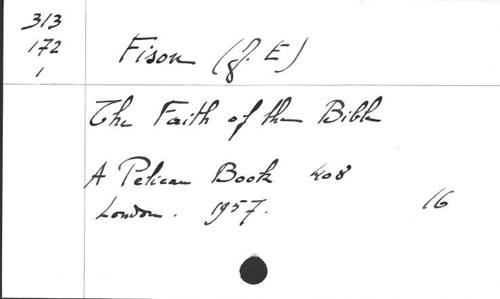 313
172
1
Fison (J. E)
The Faith of the Bible
A Pelican Book 408
London. 1957.
16